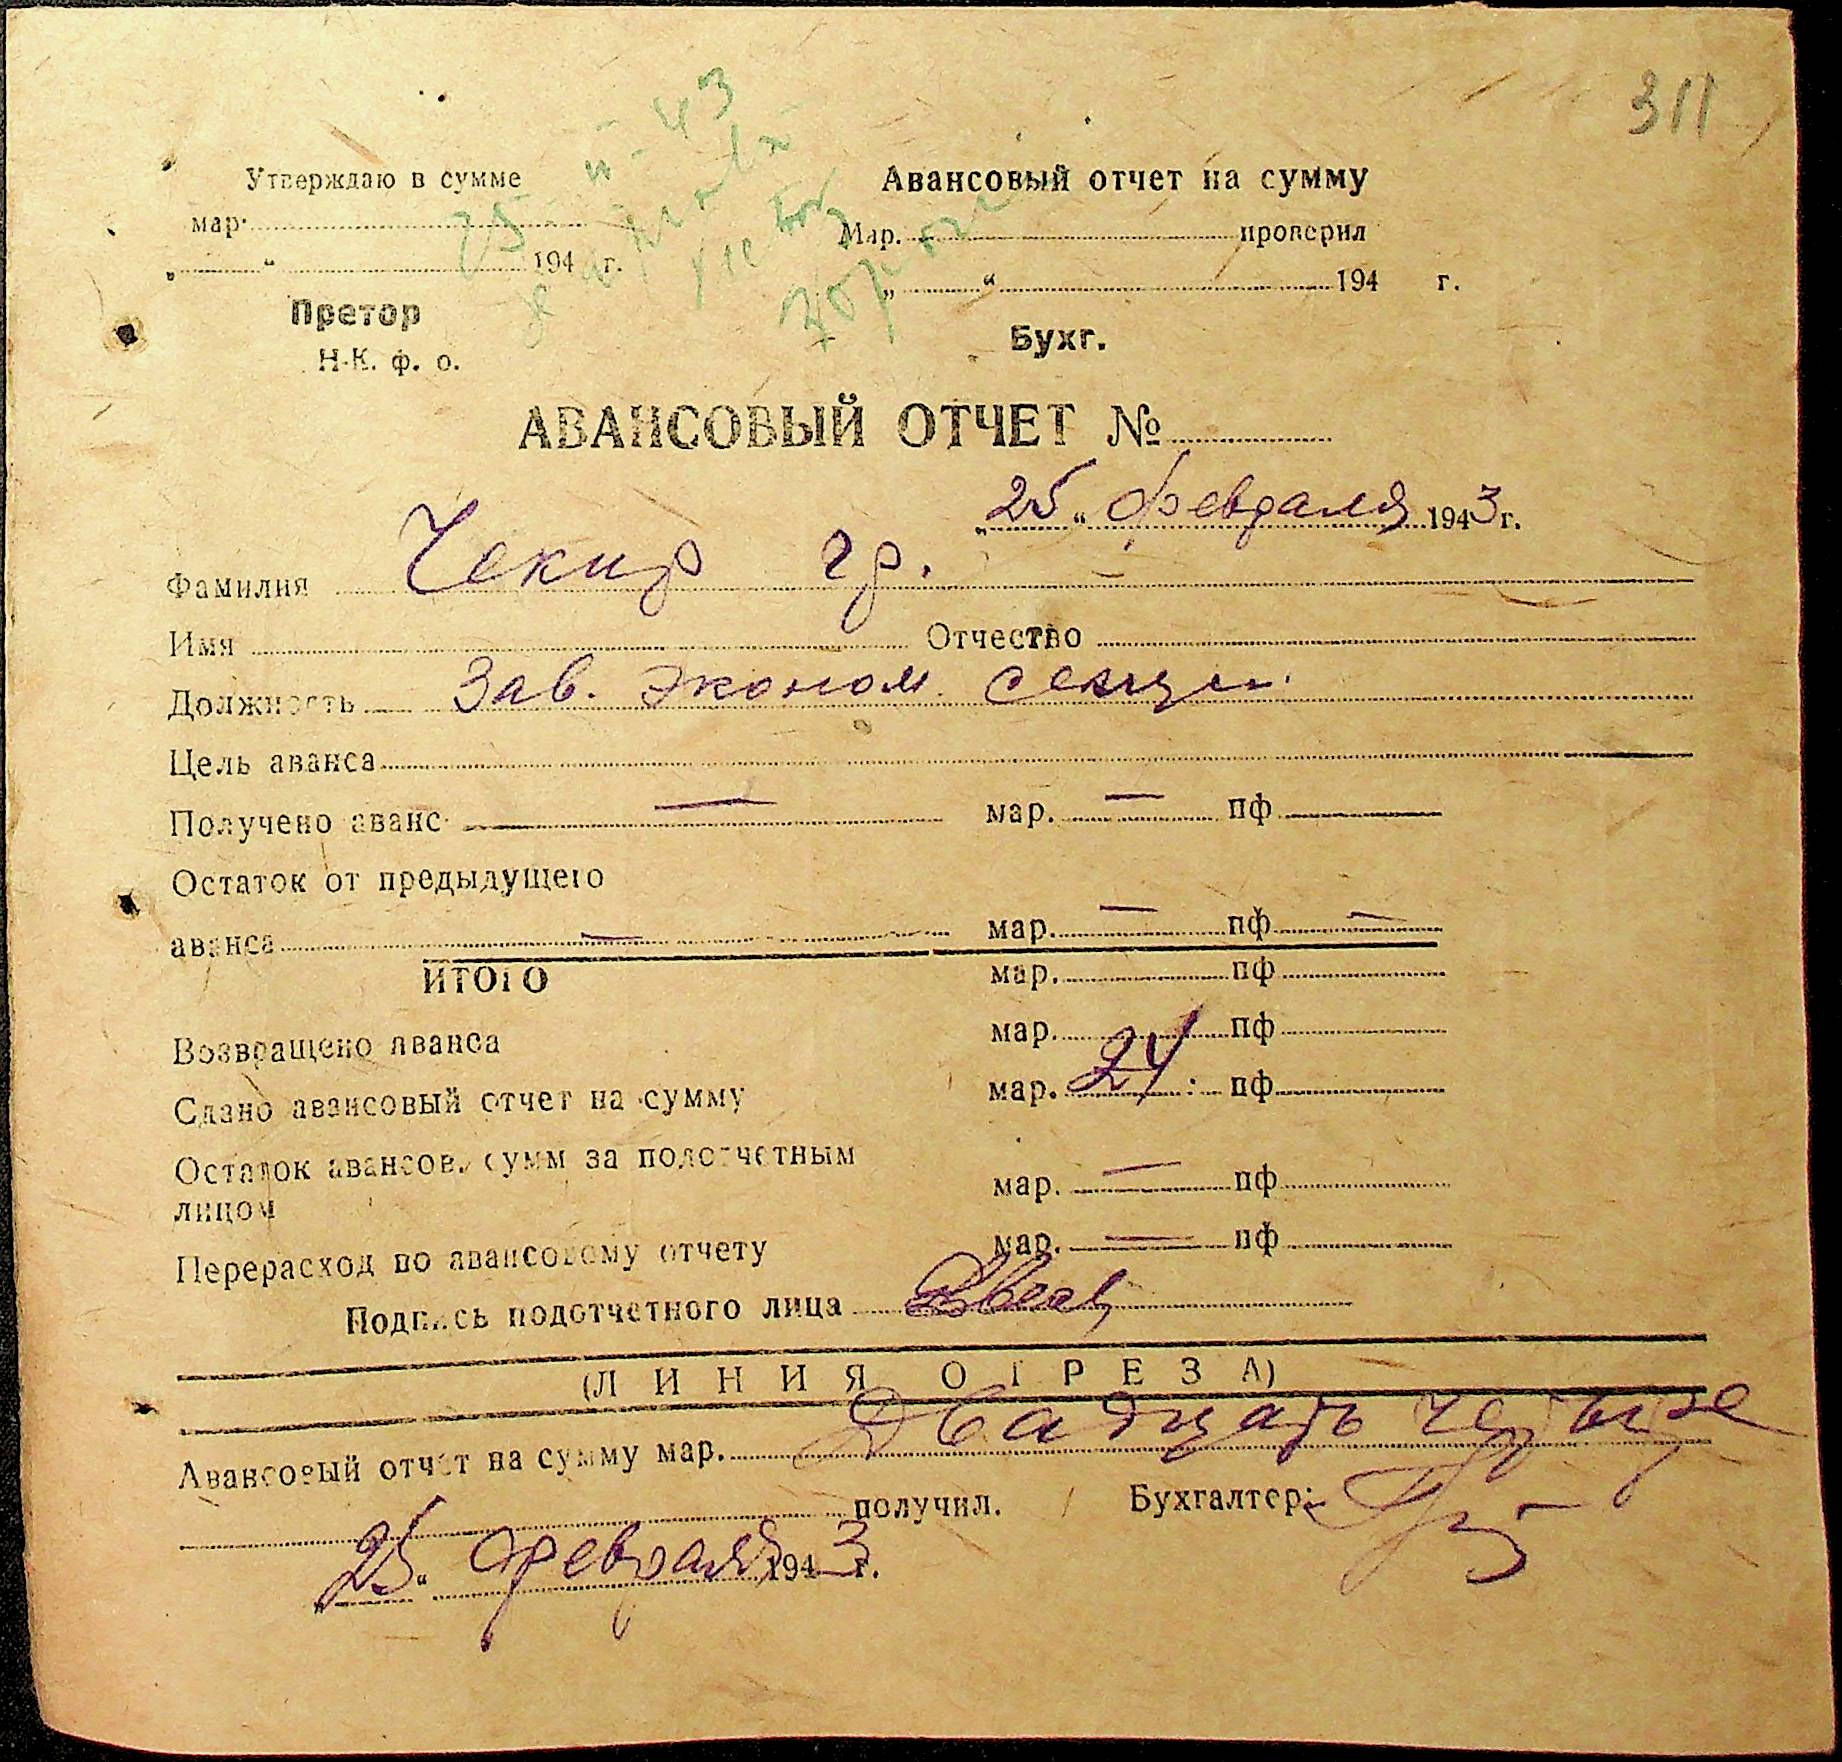 311
25 II - 43
Утверждаю в сумме
мар.
„ “ 194 г.
Претор
Н-К. ф. о.
Авансовый отчет на сумму
Мар. проверил
„ “ 194 г.
Бухг.
АВАНСОВЫЙ ОТЧЕТ №
„25“ февраля 1943 г.
Фамилия Чекир гр.
Имя Отчество
Должность Зав. эконом. секции.
Цель аванса
Получено аванс — мар. — пф
Остаток от предыдущего
аванса — мар. — пф —
ИТОГО мар. пф
Возвращено аванса мар. пф
Сдано авансовый отчет на сумму мар. 24 : пф
Остаток авансов. сумм за подотчетным
лицом мар. — пф
Перерасход по авансовому отчету мар. — пф
Подпись подотчетного лица
(ЛИНИЯ ОТРЕЗА)
Авансовый отчет на сумму мар. Двадцать четыре
получил. Бухгалтер:
„25“ февраля 1943 г.